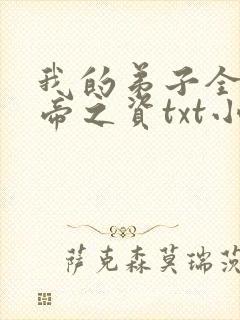 我的弟子全
帝之资txt小
萨克森莫瑞茨